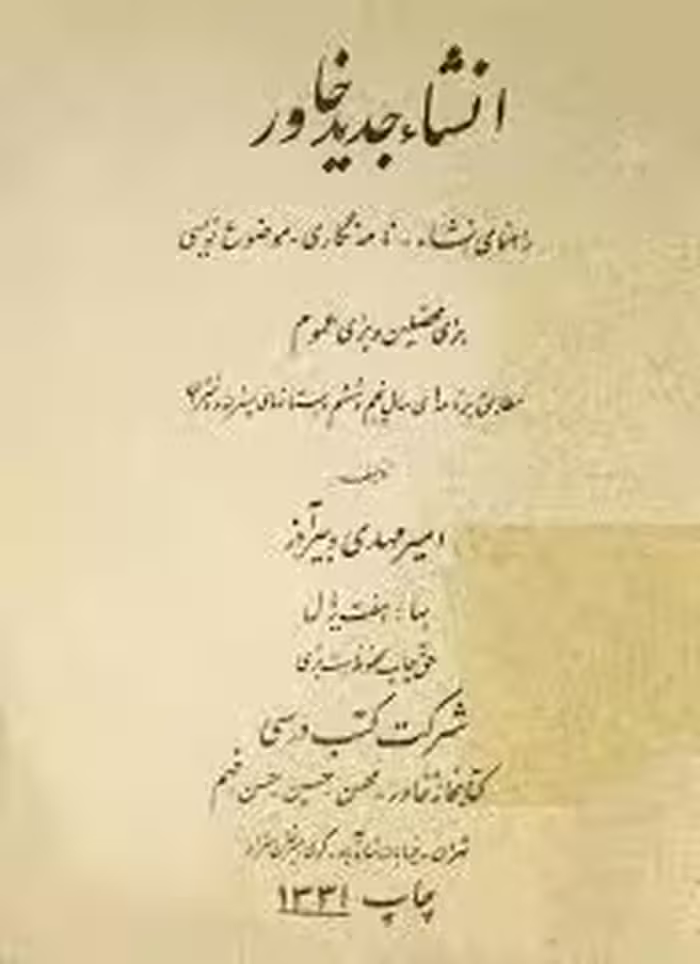 انشاء جدید خاور
راهنمای انشاء - نامه نگاری - موضوع نویسی
برای محصلین و برای عموم
مطابق برنامه های سال پنجم و ششم دبستانهای پسرانه و دخترانه
تألیف
امیرمهدی
بها: هفت ریال
حق چاپ محفوظ است برای
شرکت کتب درسی
کتابخانه خاور - محسن - حسین - حسن فهم
تهران - خیابان
چاپ ۱۳۳۱